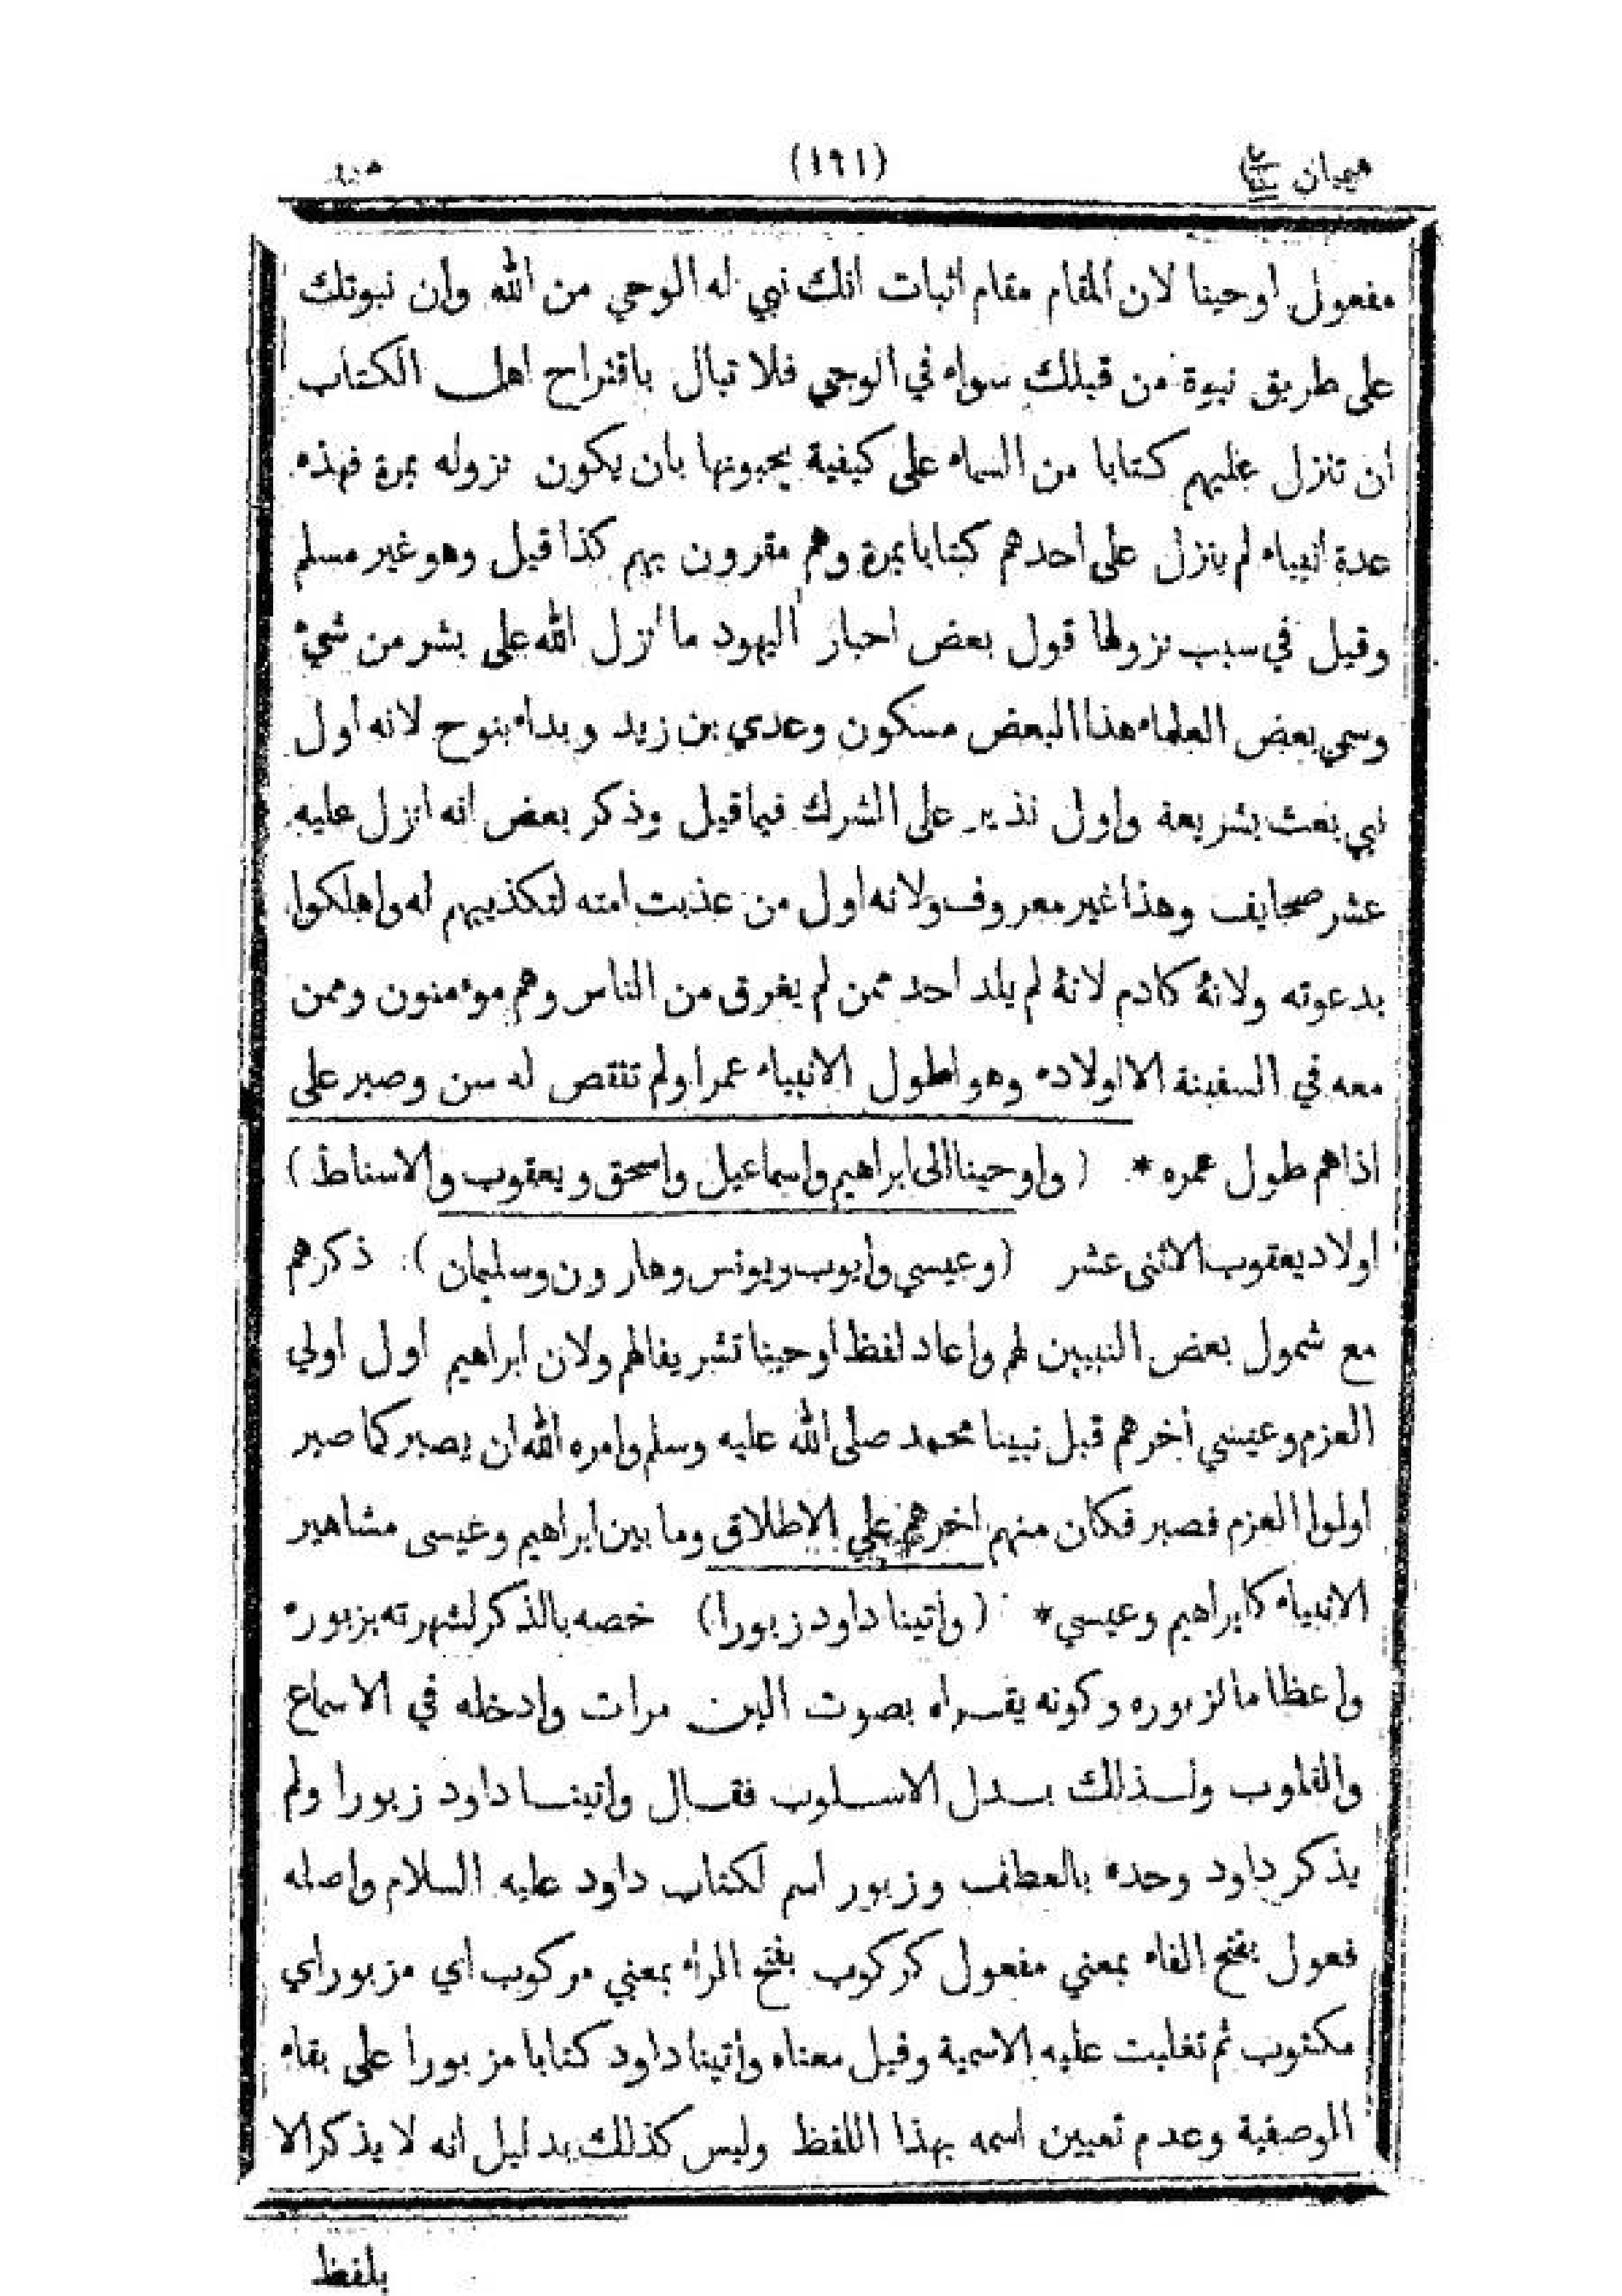 هميان
(١٩١)
مفعول اوحينا لان المقام مقام اثبات انك نبي له الوحي من الله وان نبوتك
على طريق نبوة من قبلك سواء في الوحي فلا تبال باقتراح اهل الكتاب
ان تنزل عليهم كتابا من السماء على كيفية يحبونها بان يكون نزوله بمرة فهذه
عدة انبياء لم ينزل على احدهم كتابا بمرة وهم مقرون بهم كذا قيل وهو غير مسلم
وقيل في سبب نزولها قول بعض احبار اليهود ما انزل الله على بشر من شيء
وسمى بعض العلماء هذا البعض مسكون وعدي بن زيد وبداء بنوح لانه اول
نبي بعث بشريعة واول نذير على الشرك فيما قيل وذكر بعض انه انزل عليه
عشر صحايف وهذا غير معروف ولانه اول من عذبت امته لتكذيبهم له واهلكوا
بدعوته ولانه كادم لانه لم يلد احد ممن لم يغرق من الناس وهم مومنون وممن
معه في السفينة الا اولاده وهو اطول الانبياء عمرا ولم تنتقص له سن وصبر على
اذاهم طول عمره * (واوحينا الى ابراهيم واسماعيل واسحق ويعقوب والاسباط)
اولاد يعقوب الاثنى عشر (وعيسي وايوب ويونس وهارون وسليمان) ذكرهم
مع شمول بعض النبيين لهم واعاد لفظ اوحينا تشريفا لهم ولان ابراهيم اول اولي
العزم وعيسي اخرهم قبل نبينا محمد صلى الله عليه وسلم وامره الله ان يصبر كما صبر
اولوا العزم فصبر فكان منهم اخرهم علي الاطلاق وما بين ابراهيم وعيسى مشاهير
الانبياء كابراهيم وعيسي * (واتينا داود زبورا) خصه بالذكر لشهرته بزبوره
واعظاما لزبوره وكونه يقراه بصوت الين مرات وادخله في الاسماع
والقلوب ولذلك بدل الاسلوب فقال واتينا داود زبورا ولم
يذكر داود وحده بالعطف وزبور اسم لكتاب داود عليه السلام واصله
فعول بفتح الفاء بمعني مفعول كركوب بفتح الراء بمعني مركوب اي مزبور اي
مكتوب ثم تغلبت عليه الاسمية وقيل معناه واتينا داود كتابا مزبورا على بقاء
الوصفية وعدم تعيين اسمه بهذا اللفظ وليس كذلك بدليل انه لا يذكر الا
بلفظ